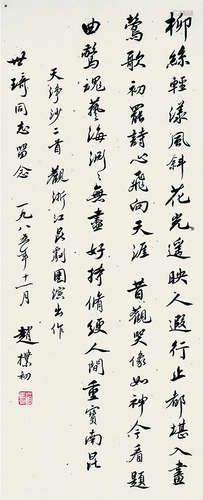 柳絲輕漾風斜花光遙映人遐行止都堪入畫
鶯歌初罷詩心飛向天涯 昔觀哭像如神今看題
曲驚魂藝海淵〻無盡好持脩綆人間重寶南昆
天淨沙二首 觀浙江昆劇團演出作
世琦同志留念 一九八五年十一月 趙樸初